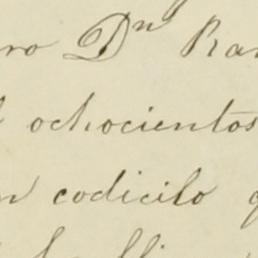 ro Dn Ra
ochocientos
n codicilo q